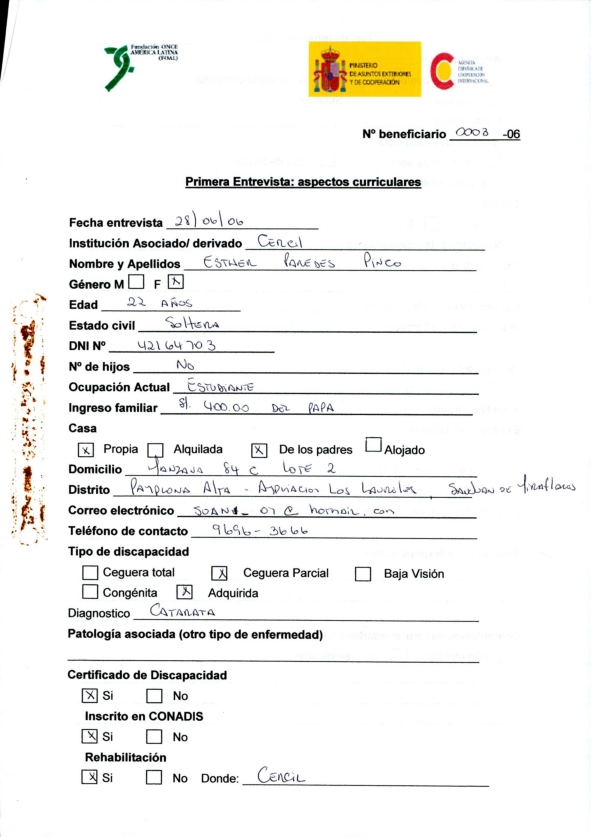 Fundación ONCE
AMÉRICA LATINA
(FOAL)
MINISTERIO
DE ASUNTOS EXTERIORES
Y DE COOPERACIÓN
AGENCIA
ESPAÑOLA DE
COOPERACIÓN
INTERNACIONAL
Nº beneficiario 0003 -06
Primera Entrevista: aspectos curriculares
Fecha entrevista 28/06/06
Institución Asociado/ derivado Cercil
Nombre y Apellidos ESTHER PAREDES PINCO
Género M F X
Edad 22 AÑOS
Estado civil Soltera
DNI Nº 42164703
Nº de hijos No
Ocupación Actual ESTUDIANTE
Ingreso familiar S/. 400.00 DEL PAPA
Casa
X Propia Alquilada X De los padres Alojado
Domicilio MANZANA 84 C LOTE 2
Distrito PAMPLONA ALTA - AMPLIACION LOS LAURELES, SAN JUAN DE MIRAFLORES
Correo electrónico @ hotmail.com
Teléfono de contacto 9696-3666
Tipo de discapacidad
Ceguera total X Ceguera Parcial Baja Visión
Congénita X Adquirida
Diagnostico CATARATA
Patología asociada (otro tipo de enfermedad)
Certificado de Discapacidad
X Si No
Inscrito en CONADIS
X Si No
Rehabilitación
X Si No Donde: CERCIL